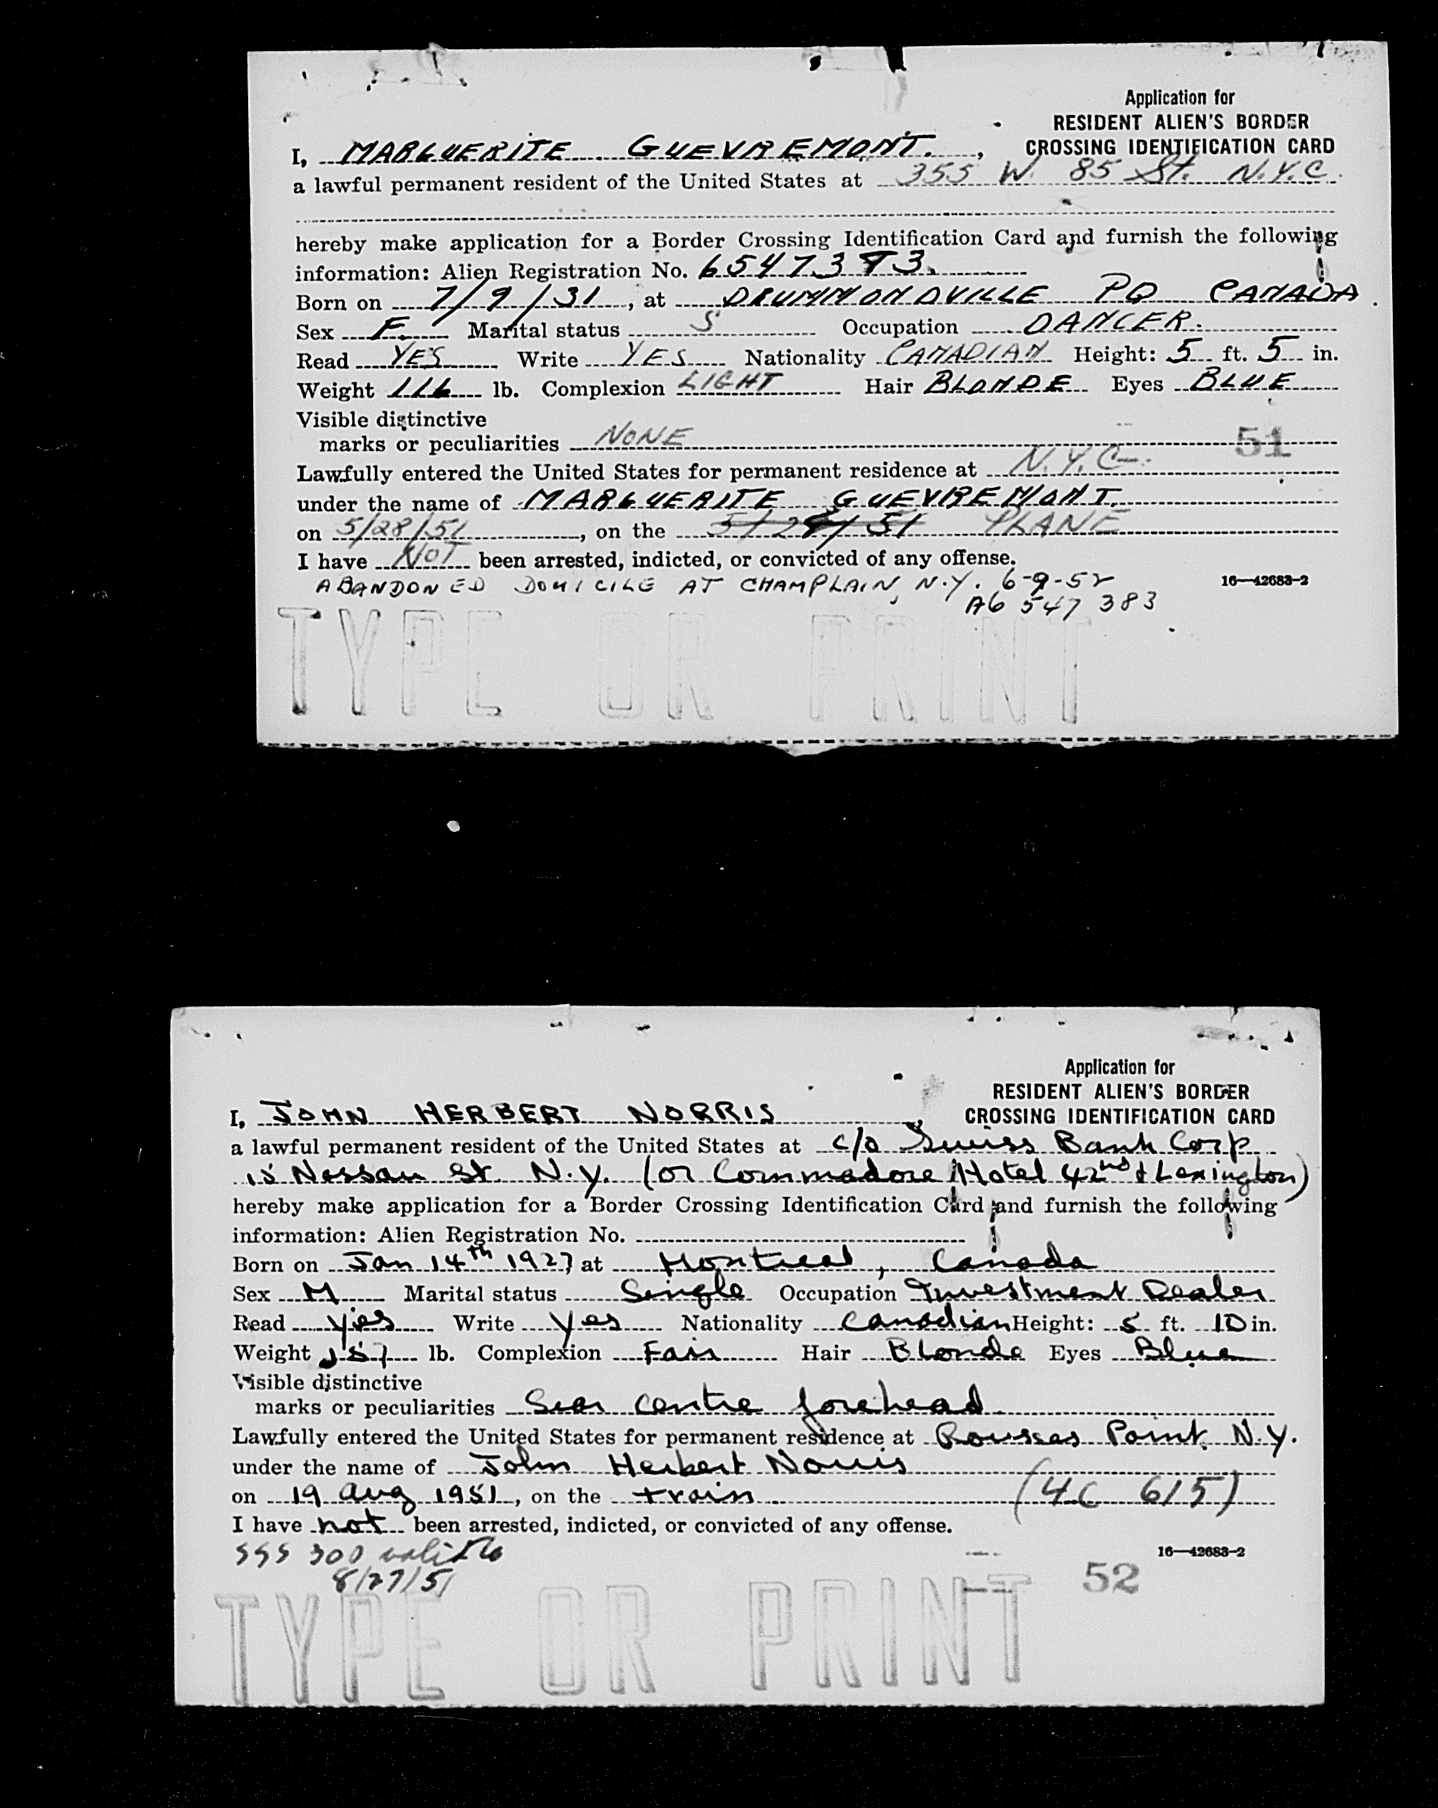 Application for
RESIDENT ALIEN'S BORDER
CROSSING IDENTIFICATION CARD
I, MARGUERITE GUEVREMONT.,
a lawful permanent resident of the United States at 355 W. 85 St. N.Y.C.
hereby make application for a Border Crossing Identification Card and furnish the following
information: Alien Registration No. 6547383.
Born on 7/9/31, at DRUMMONDVILLE PQ CANADA.
Sex F. Marital status S Occupation DANCER.
Read YES Write YES Nationality CANADIAN Height: 5 ft. 5 in.
Weight 116 lb. Complexion LIGHT Hair BLONDE Eyes BLUE
Visible distinctive
marks or peculiarities NONE
51
Lawfully entered the United States for permanent residence at N.Y.C.
under the name of MARGUERITE GUEVREMONT.
on 5/28/51, on the 5/28/51 PLANE
I have NOT been arrested, indicted, or convicted of any offense.
ABANDONED DOMICILE AT CHAMPLAIN, N.Y. 6-9-52
16—42683-2
A6 547 383
TYPE OR PRINT
Application for
RESIDENT ALIEN'S BORDER
CROSSING IDENTIFICATION CARD
I, JOHN HERBERT NORRIS,
a lawful permanent resident of the United States at c/o Swiss Bank Corp
15 Nassau St. N.Y. (or Commodore Hotel 42nd & Lexington)
hereby make application for a Border Crossing Identification Card and furnish the following
information: Alien Registration No.
Born on Jan 14th 1927 at Montreal, Canada
Sex M Marital status Single Occupation Investment Dealer
Read Yes Write Yes Nationality Canadian Height: 5 ft. 10 in.
Weight 157 lb. Complexion Fair Hair Blonde Eyes Blue
Visible distinctive
marks or peculiarities Scar centre forehead
Lawfully entered the United States for permanent residence at Rouses Point N.Y.
under the name of John Herbert Norris
on 19 Aug 1951, on the train (4C 615)
I have not been arrested, indicted, or convicted of any offense.
SSS 300 valid to
16—42683-2
8/27/51
52
TYPE OR PRINT